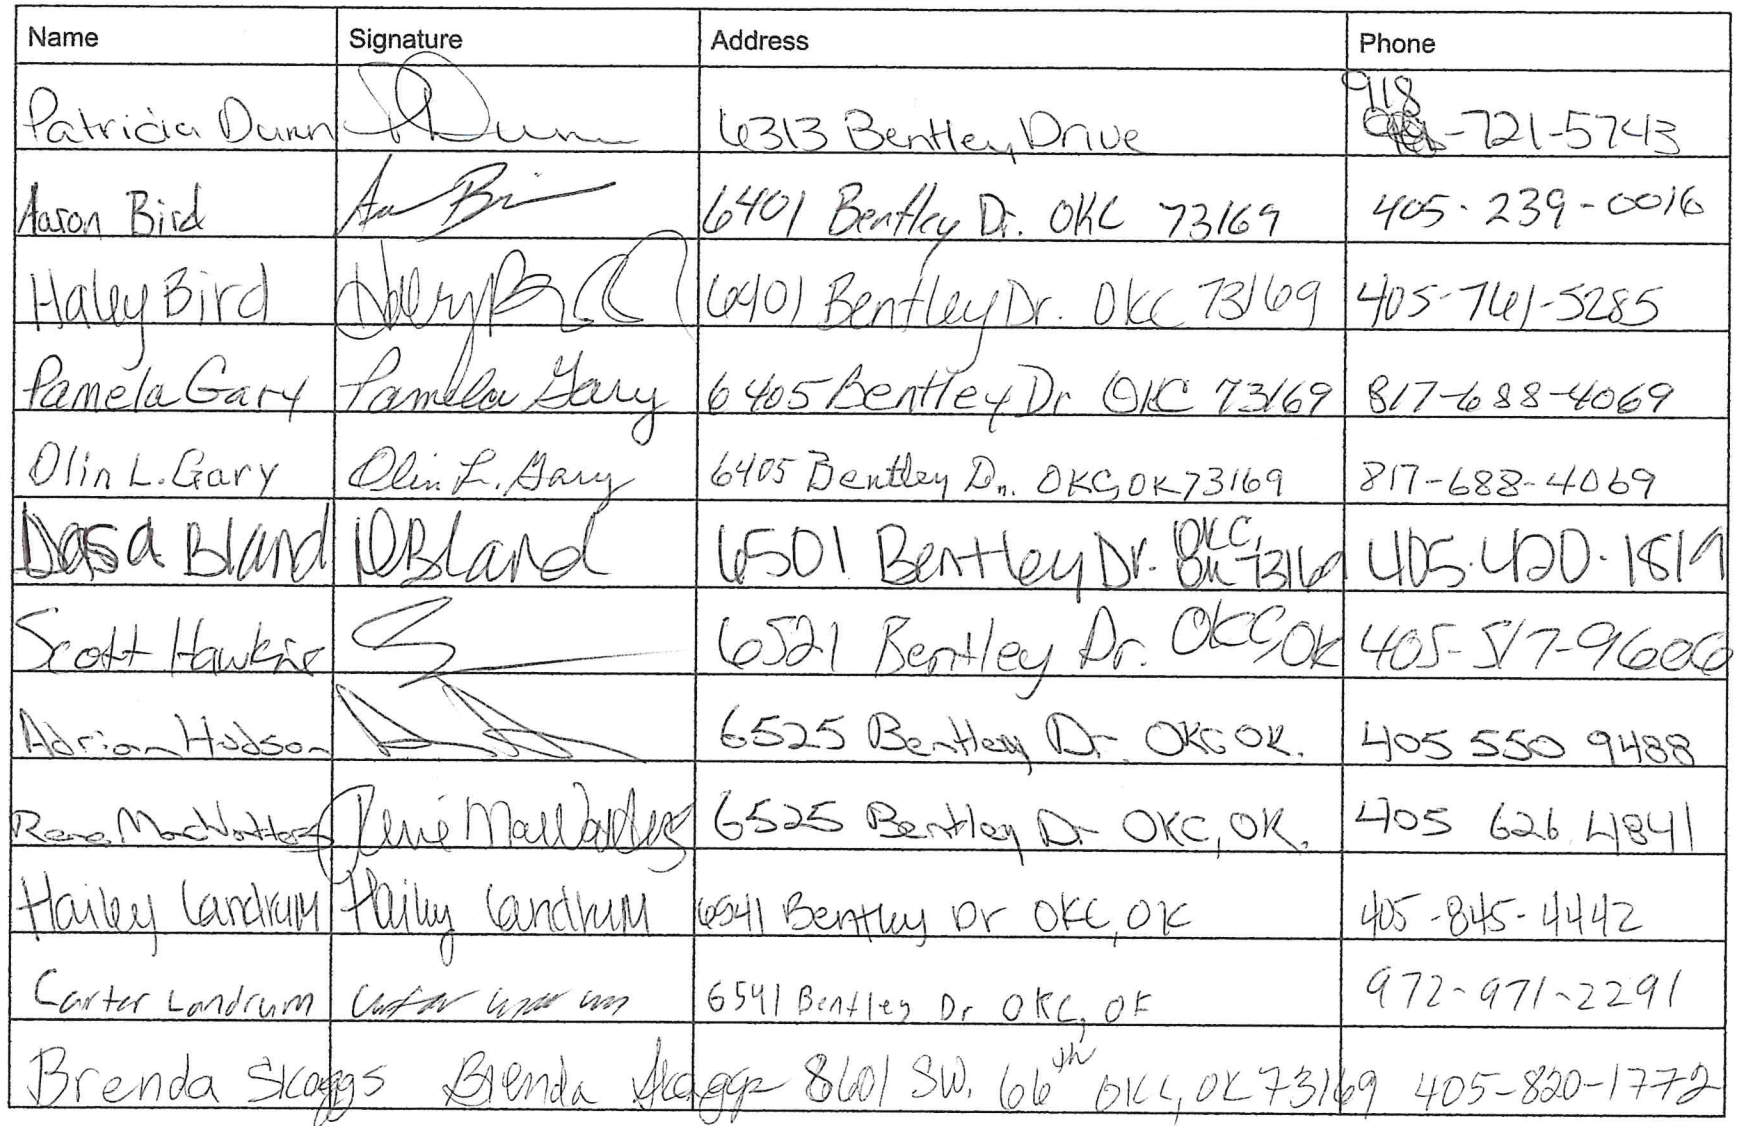 Name Signature Address Phone
Patricia Dunn PDunn 6313 Bentley Drive 918-721-5743
Aaron Bird 6401 Bentley Dr. OKC 73169 405-239-0016
Haley Bird Haley B 6401 Bentley Dr. OKC 73169 405-761-5285
Pamela Gary Pamela Gary 6405 Bentley Dr OKC 73169 817-688-4069
Olin L. Gary Olin L. Gary 6405 Bentley Dr. OKC, OK 73169 817-688-4069
Dasa Bland DBland 6501 Bentley Dr. OKC, OK 73169 405.420.1819
Scott Hawkins 6521 Bentley Dr. OKC, OK 405-517-9606
Adrian Hudson 6525 Bentley Dr. OKC OK. 405 550 9488
Rene 6525 Bentley Dr OKC, OK. 405 626 4841
Hailey Landrum Hailey Landrum 6541 Bentley Dr OKC, OK 405-845-4442
Carter Landrum 6541 Bentley Dr OKC, OK 972-971-2291
Brenda Skaggs Brenda Skaggs 8601 SW. 66th OKC, OK 73169 405-820-1772